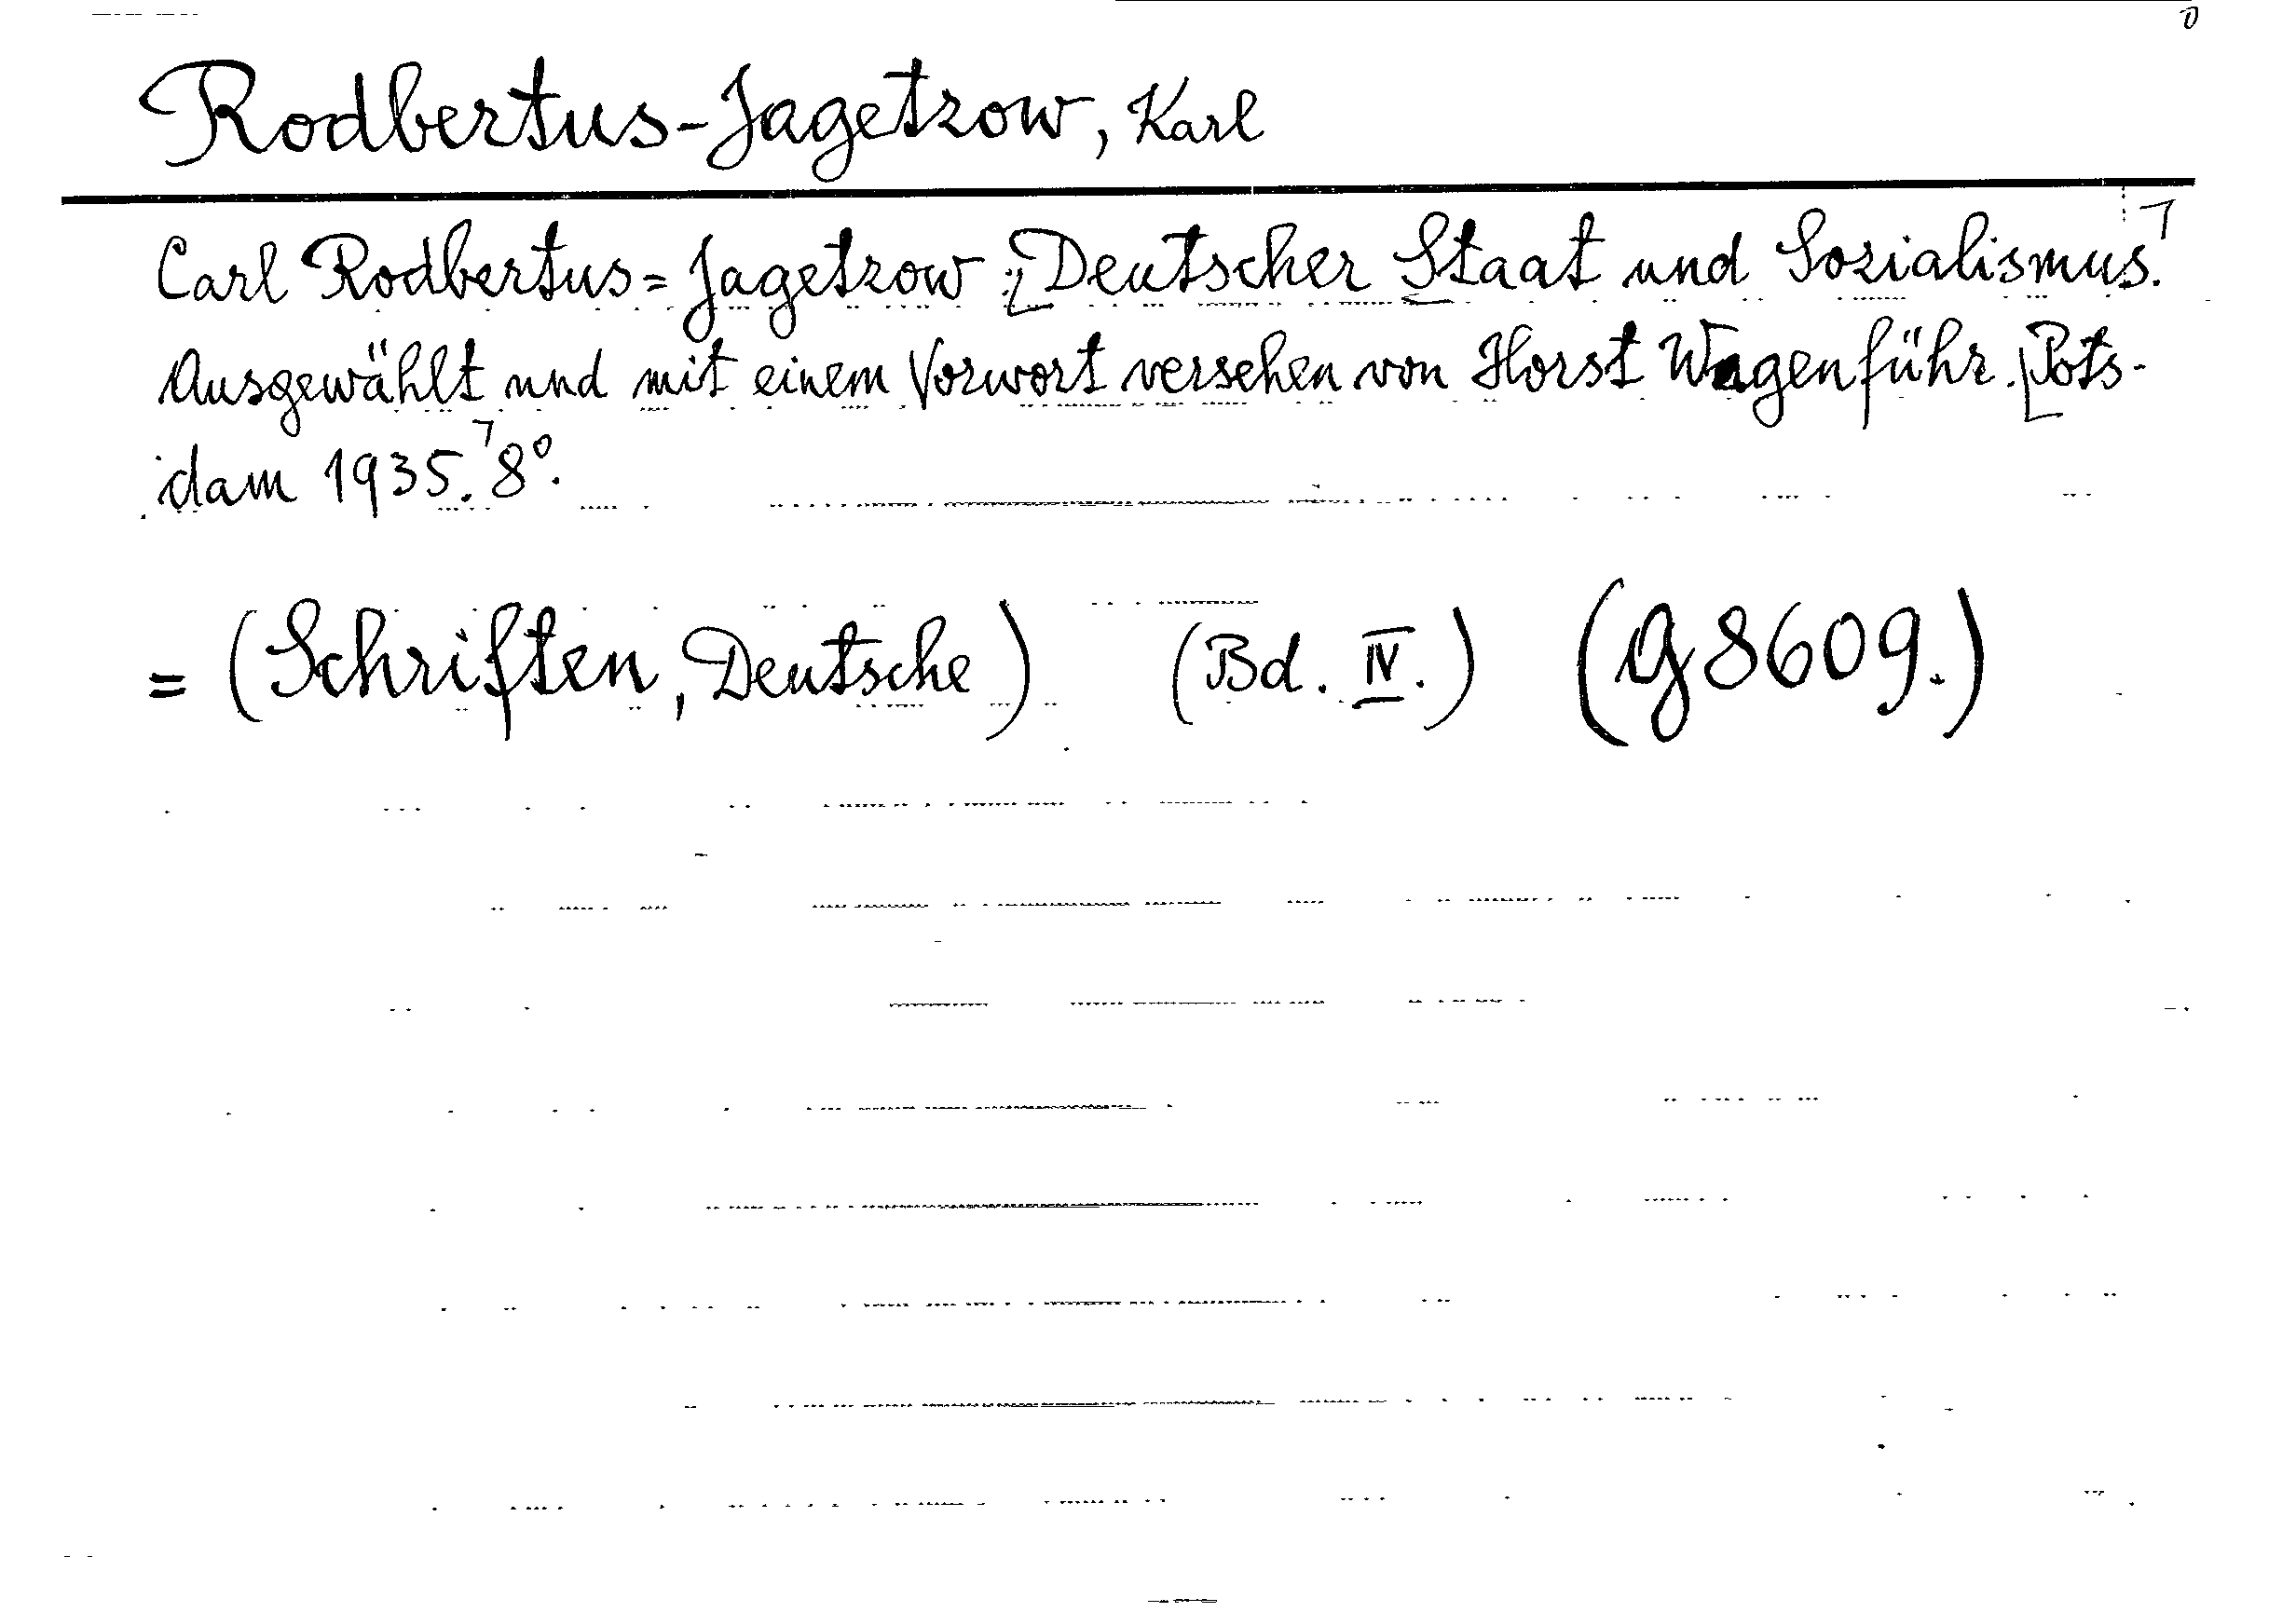 Rodbertus-Jagetzow, Karl
Carl Rodbertus=Jagetzow: Deutscher Staat und Sozialismus.
Ausgewählt und mit einem Vorwort versehen von Horst Wagenführ. Pots-
dam 1935. 8°.
= (Schriften, Deutsche) (Bd. IV.) (G 8609.)